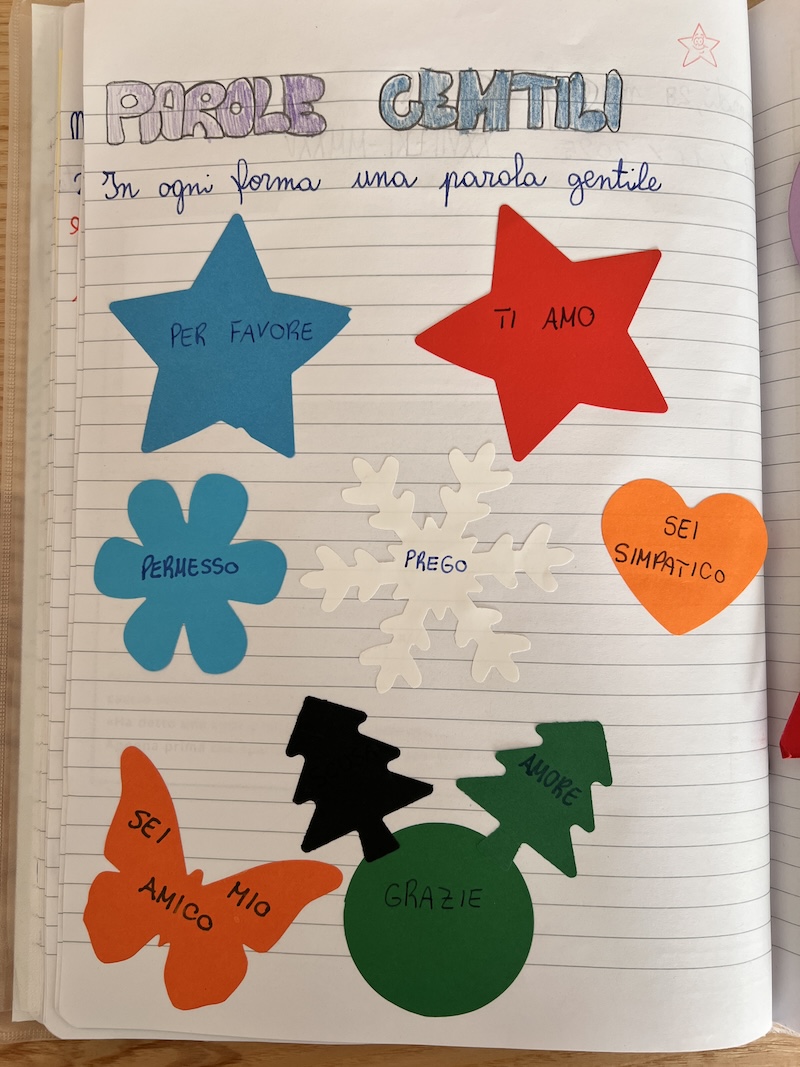 PAROLE GENTILI
In ogni forma una parola gentile
PER FAVORE
TI AMO
PERMESSO
PREGO
SEI
SIMPATICO
AMORE
SEI
AMICO MIO
GRAZIE